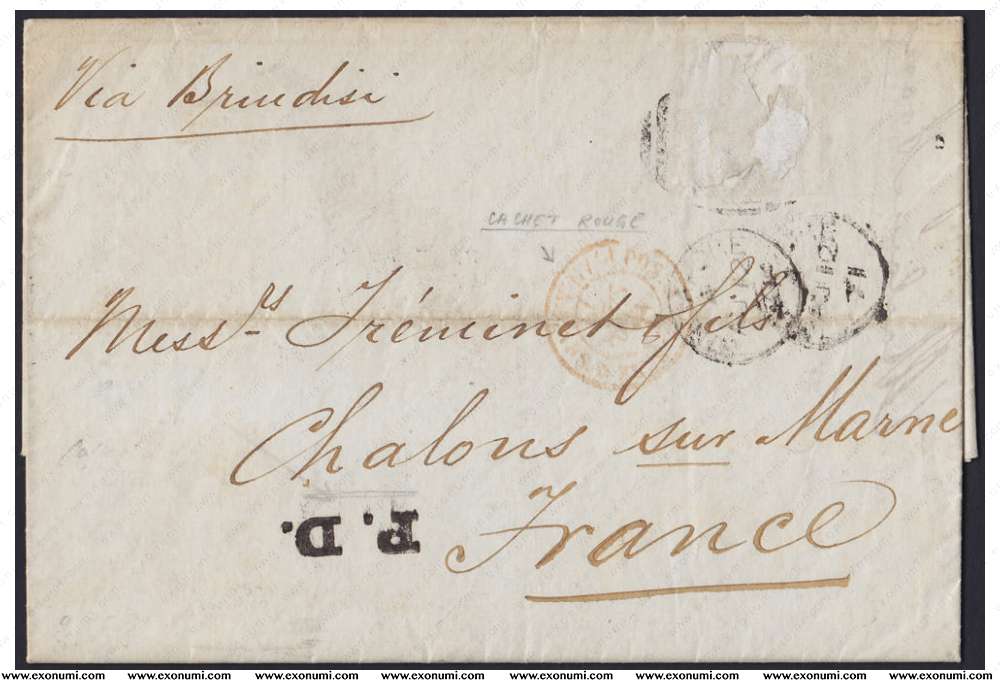 Via Brindisi
CACHET ROUGE
Mess.rs Tréminet & fils
Chalons sur Marne
P. D.
France
www.exonumi.com www.exonumi.com www.exonumi.com www.exonumi.com www.exonumi.com www.exonumi.com www.exonumi.com www.exonumi.com